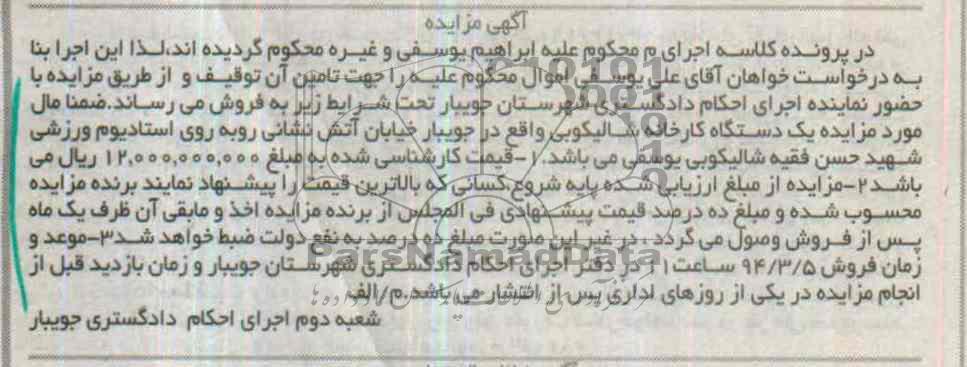 آگهی مزایده
در پرونده کلاسه اجرای م محکوم علیه ابراهیم یوسفی و غیره محکوم گردیده اند،لذا این اجرا بنا
به درخواست خواهان آقای علی یوسفی اموال محکوم علیه را جهت تامین آن توقیف و از طریق مزایده با
حضور نماینده اجرای احکام دادگستری شهرستان جویبار تحت شرایط زیر به فروش می رساند.ضمنا مال
مورد مزایده یک دستگاه کارخانه شالیکوبی واقع در جویبار خیابان آتش نشانی روبه روی استادیوم ورزشی
شهید حسن فقیه شالیکوبی یوسفی می باشد.۱-قیمت کارشناسی شده به مبلغ ۱۲,۰۰۰,۰۰۰,۰۰۰ ریال می
باشد۲-مزایده از مبلغ ارزیابی شده پایه شروع،کسانی که بالاترین قیمت را پیشنهاد نمایند برنده مزایده
محسوب شده و مبلغ ده درصد قیمت پیشنهادی فی المجلس از برنده مزایده اخذ و مابقی آن ظرف یک ماه
پس از فروش وصول می گردد ، در غیر این صورت مبلغ ده درصد به نفع دولت ضبط خواهد شد۳-موعد و
زمان فروش ۹۴/۳/۵ ساعت۱۱ در دفتر اجرای احکام دادگستری شهرستان جویبار و زمان بازدید قبل از
انجام مزایده در یکی از روزهای اداری پس از انتشار می باشد.م/الف
شعبه دوم اجرای احکام دادگستری جویبار
ParsNamadData